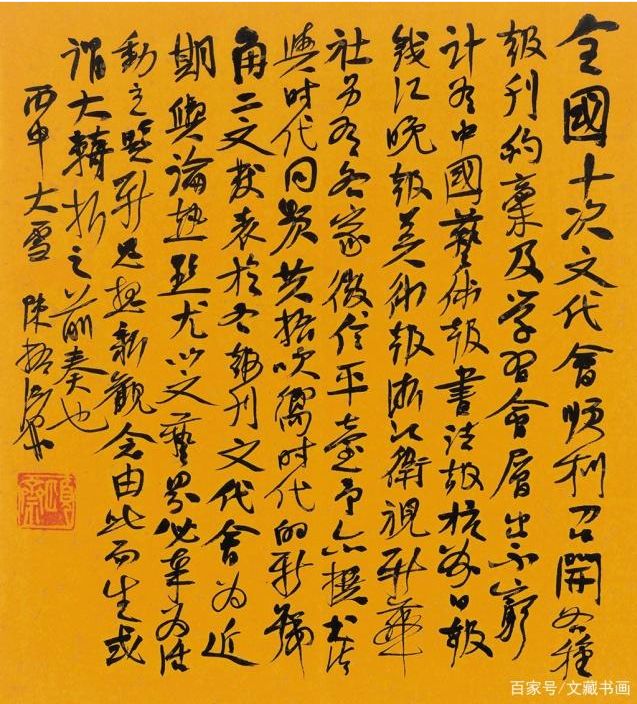 全國十次文代會順利召開各種
報刊約稾及学習會層出不窮
計有中國藝術報書法報杭州日報
錢江晚報美術報浙江衛視新華
社另有各家微信平臺予亦撰书法
與时代同頻共振吹響时代的新號
角二文發表於各報刊文代會为近
期輿論熱點尤以文藝界必为活
動之點新思想新觀念由此而生或
謂大轉折之前奏也
丙申大雪 陳振濂
百家号/文藏书画